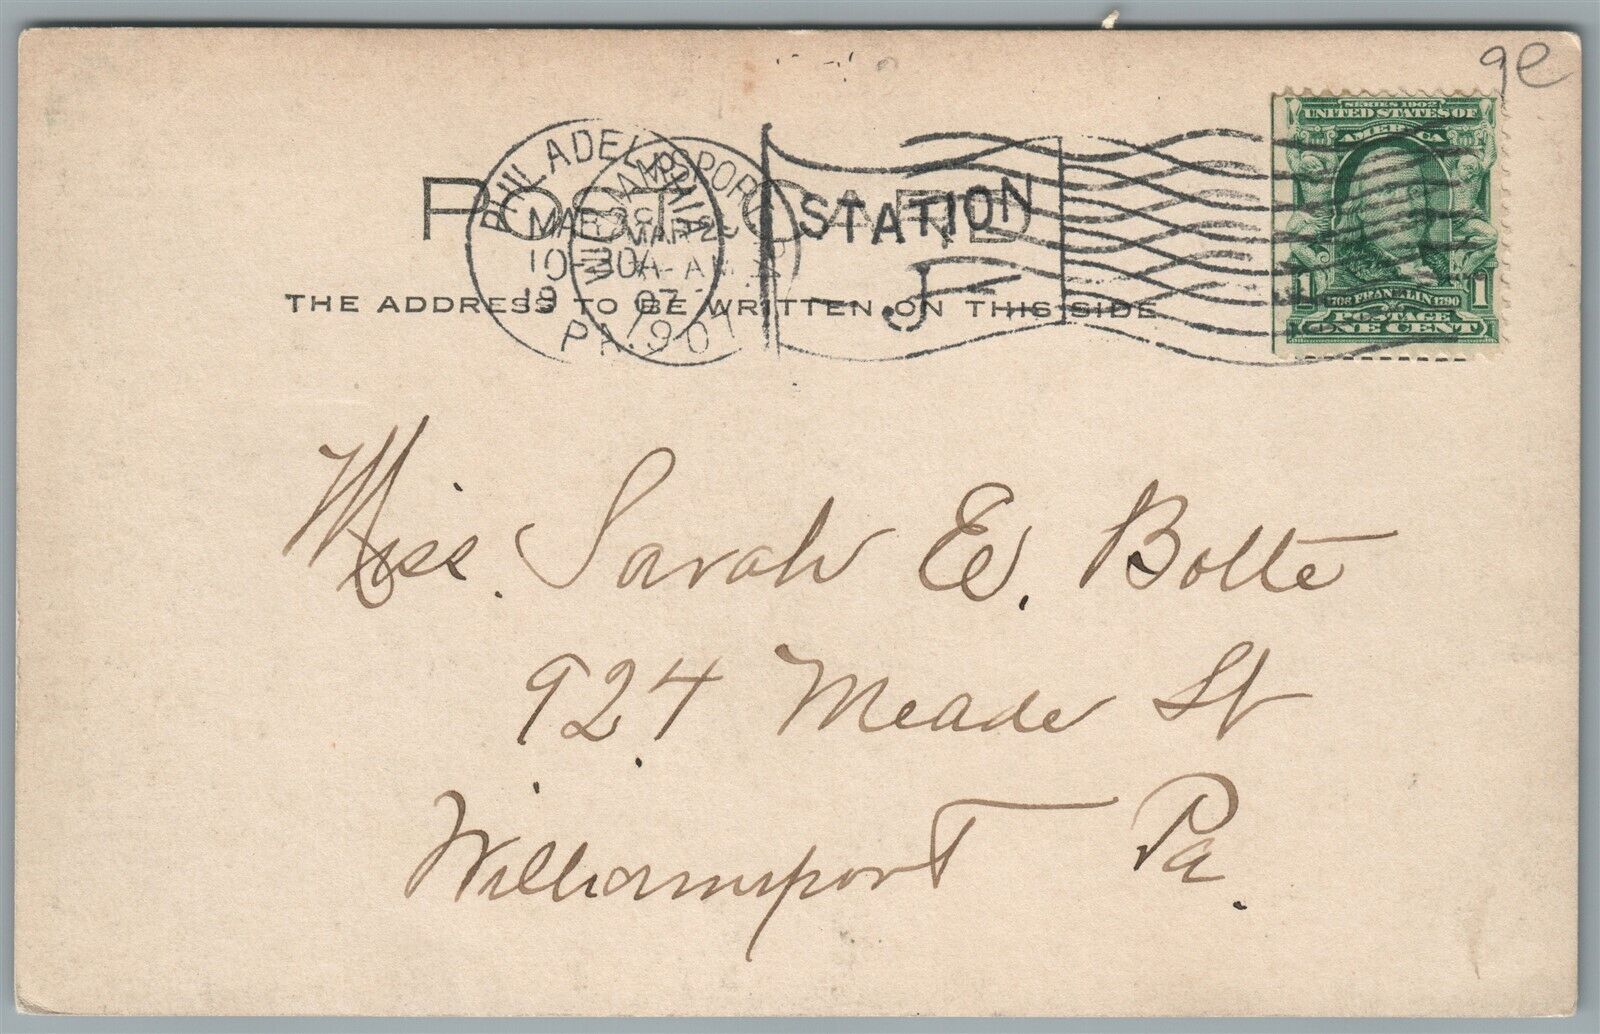 ge
SERIES 1902
UNITED STATES OF
AMERICA
1 1708 FRANKLIN 1790 1
POSTAGE
ONE CENT
PHILADELPHIA
MAR
10-30A
19 07
PA.
WILLIAMSPORT
MAR
AM
1907
STATION
J
POST CARD
THE ADDRESS TO BE WRITTEN ON THIS SIDE
Miss. Sarah E. Bolte
924 Meade St
Williamsport Pa.